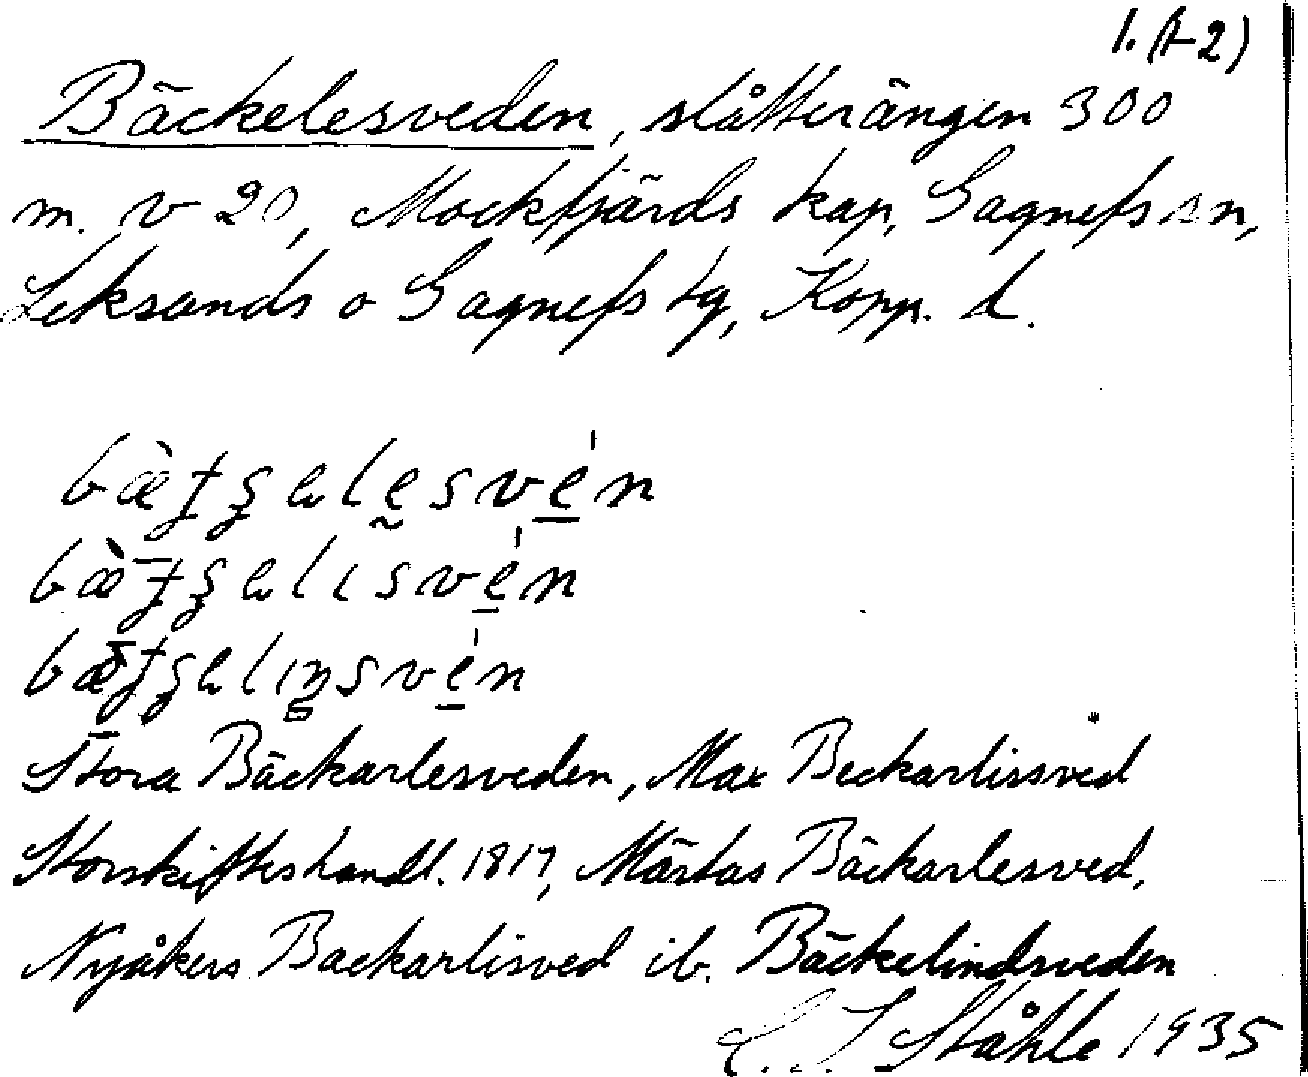 1. (1-2)
Bäckelesveden, slåtterängen 300
m. v 20, Mockfjärds kap, Gagnefs sn,
Leksands o Gagnefs tg, Kopp. l.
Stora Bäckarlesveden, Max Beckarlissved
Storskifteshandl. 1817, Mårtas Bäckarlesved,
Nyåkers Backarlisved ib. Bäckelindsveden
C. I. Ståhle 1935